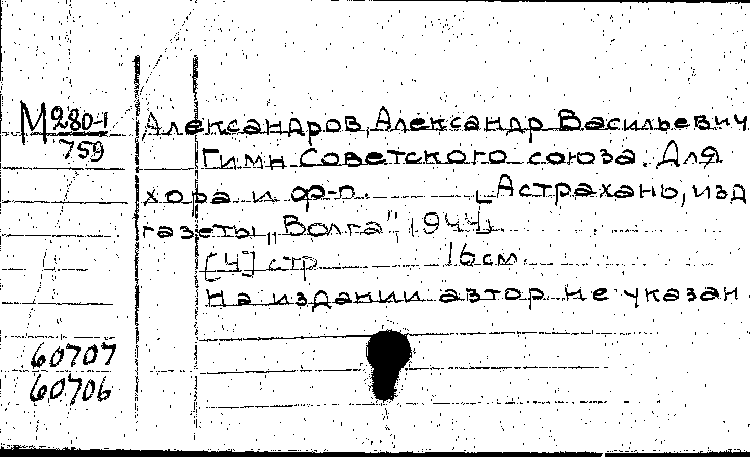 М 280-1
759
Александров, Александр Васильевич
Гимн Советского союза. Для
хора и ф-п. [Астрахань, изд
газеты „Волга", 1944]
[4] стр 16 см.
На издании автор не указан.
60707
60706